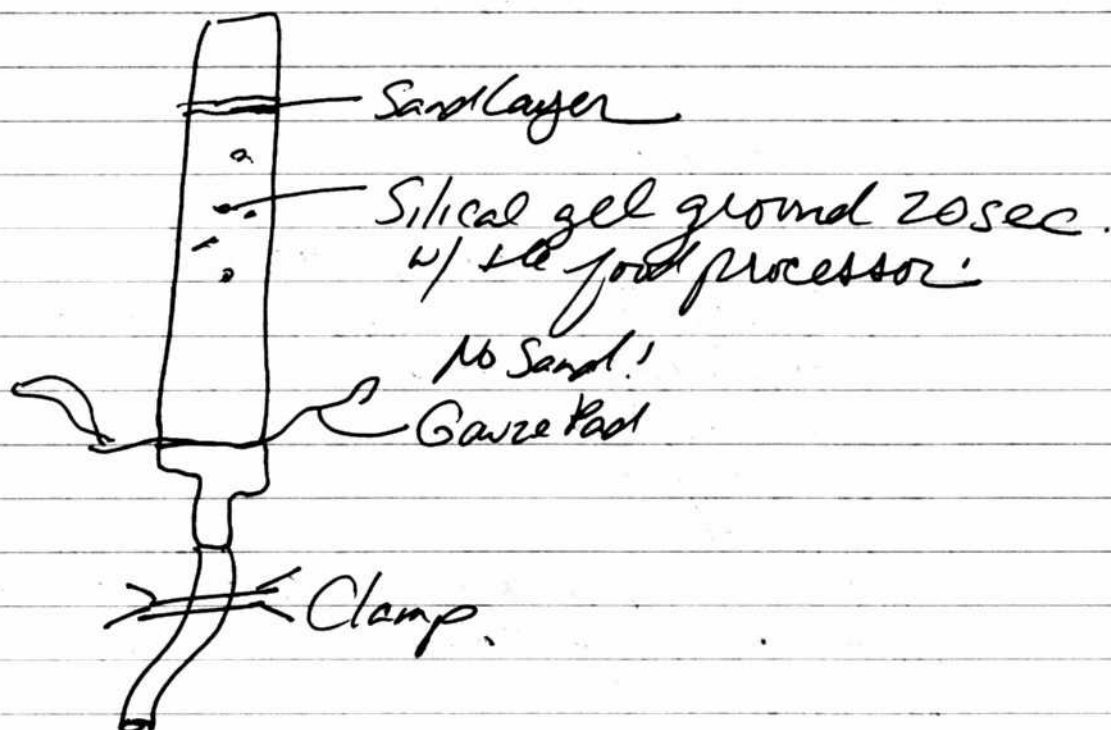 Sand Layer
Silical gel ground 20 sec.
w/ the food processor.
No Sand!
Gauze Pad
Clamp.